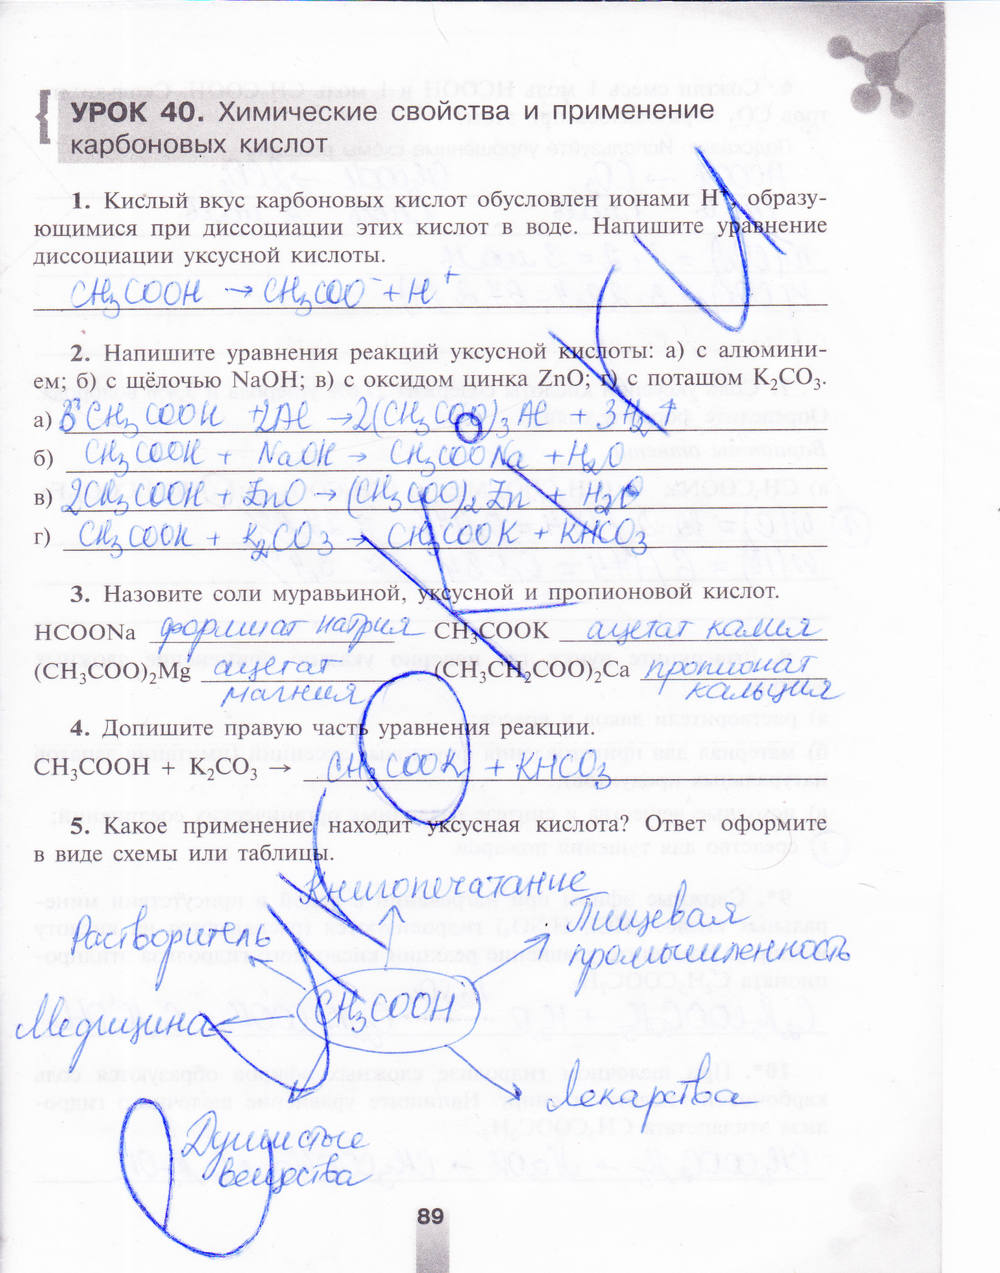 УРОК 40. Химические свойства и применение
карбоновых кислот
1. Кислый вкус карбоновых кислот обусловлен ионами H⁺, образу-
ющимися при диссоциации этих кислот в воде. Напишите уравнение
диссоциации уксусной кислоты.
CH₃COOH → CH₃COO⁻ + H⁺
2. Напишите уравнения реакций уксусной кислоты: а) с алюмини-
ем; б) с щёлочью NaOH; в) с оксидом цинка ZnO; г) с поташом K₂CO₃.
а) 6CH₃COOH + 2Al → 2(CH₃COO)₃Al + 3H₂↑
б) CH₃COOH + NaOH → CH₃COONa + H₂O
в) 2CH₃COOH + ZnO → (CH₃COO)₂Zn + H₂O
г) CH₃COOH + K₂CO₃ → CH₃COOK + KHCO₃
3. Назовите соли муравьиной, уксусной и пропионовой кислот.
HCOONa формиат натрия CH₃COOK ацетат калия
(CH₃COO)₂Mg ацетат (CH₃CH₂COO)₂Ca пропионат
магния кальция
4. Допишите правую часть уравнения реакции.
CH₃COOH + K₂CO₃ → CH₃COOK + KHCO₃
5. Какое применение находит уксусная кислота? Ответ оформите
в виде схемы или таблицы.
Книгопечатание
Растворитель
Пищевая
промышленность
Медицина
CH₃COOH
Лекарства
Душистые
вещества
89